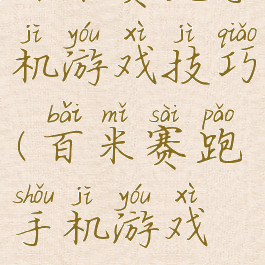 jī yóu xì jì qiǎo
机游戏技巧
bǎi mǐ sài pǎo
(百米赛跑
shǒu jī yóu xì
手机游戏